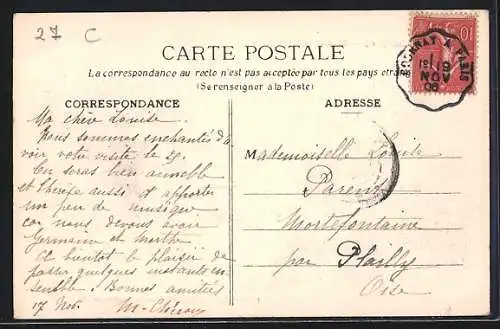 27 C
CARTE POSTALE
La correspondance au recto n'est pas acceptée par tous les pays
(Se renseigner à la Poste)
CORRESPONDANCE
ADRESSE
PARIS
19
NOV
08
10
Ma chère Louise.
Nous sommes enchantés d'a
voir votre visite le 29.
En seras bien aimable
et Therèse aussi d'apporter
un peu de musique
car nous devons avoir
Germaine et Marthe
A bientôt le plaisir de
passer quelques instants en
semble. Bonnes amitiés
17 Nov.
Mademoiselle Louise
Mortefontaine
par Plailly
Oise